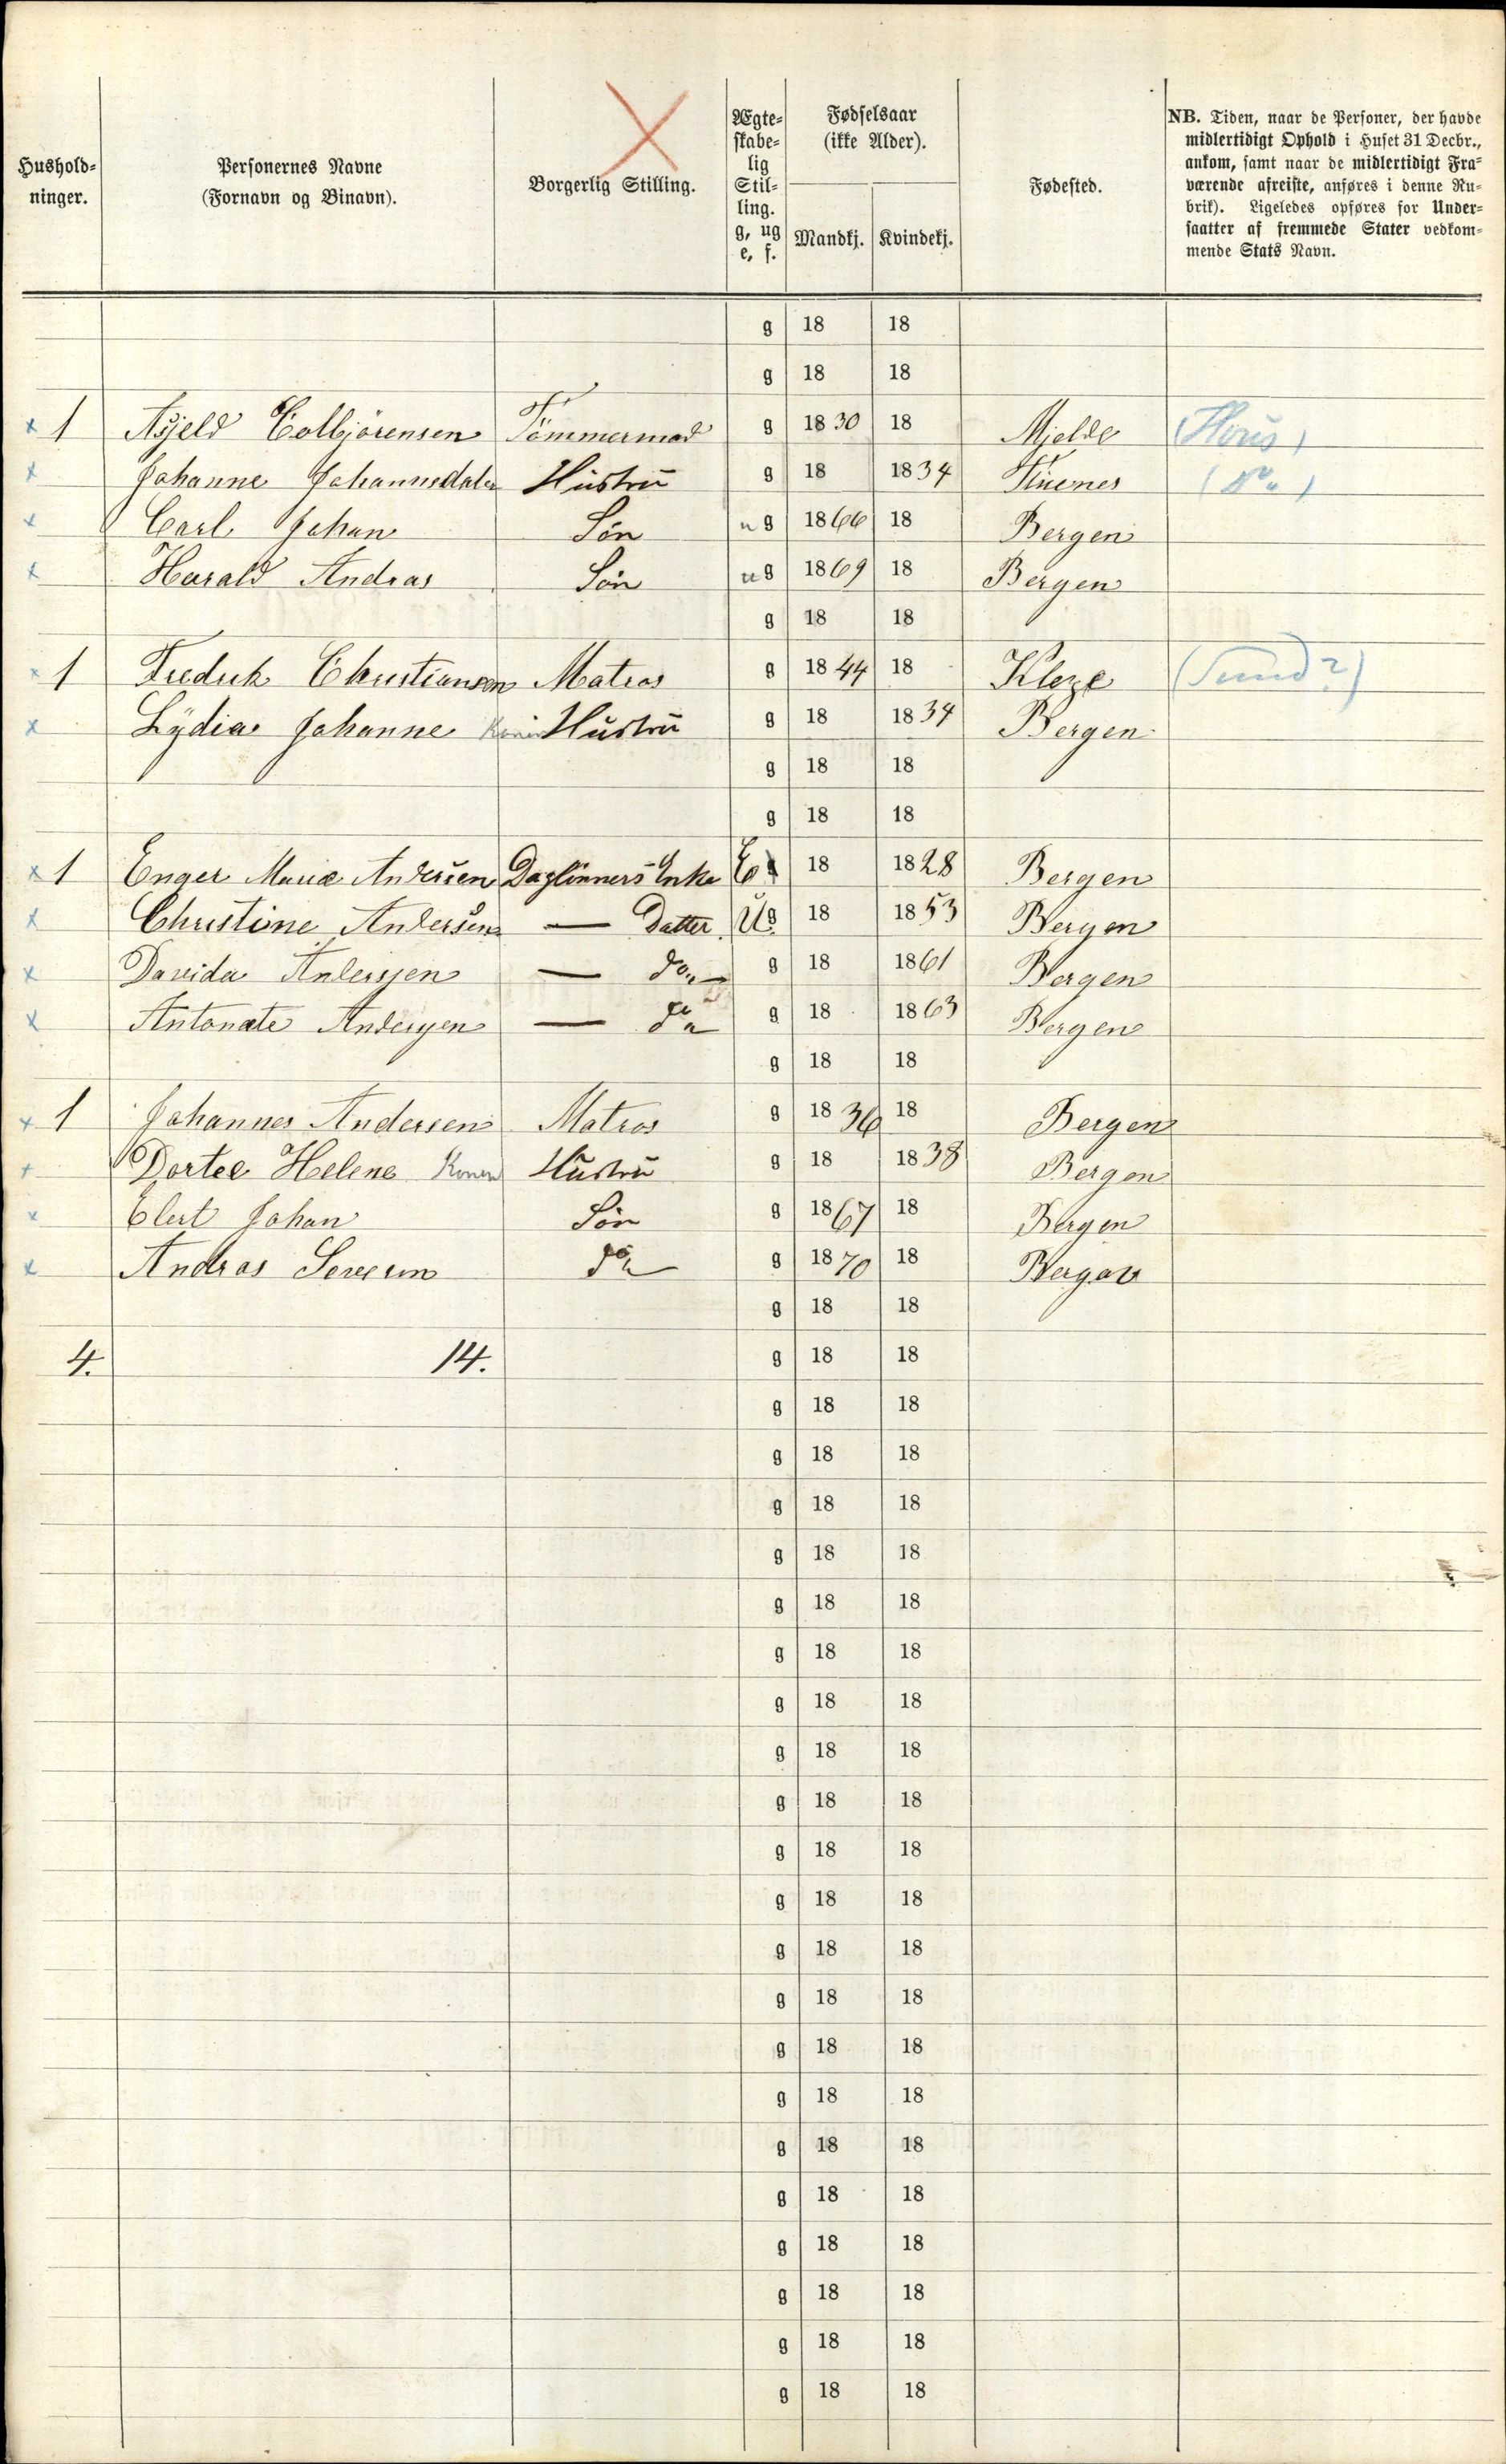 Hushold-
ninger.
Personernes Navne
(Fornavn og Binavn).
Borgerlig Stilling.
Ægte-
skabe-
lig
Stil-
ling.
g, ug
e, f.
Fødselsaar
(ikke Alder).
Mandkj. Kvindekj.
Fødested.
NB. Tiden, naar de Personer, der havde
midlertidigt Ophold i Huset 31 Decbr.,
ankom, samt naar de midlertidigt Fra-
værende afreiste, anføres i denne Ru-
brik). Ligeledes opføres for Under-
saatter af fremmede Stater vedkom-
mende Stats Navn.
g 18 18
g 18 18
x 1 Asjeld Colbjörensen Tömmermad g 1830 18 Mjelde (Hous)
x Johanne Johannsdater Hustru g 18 1834 (Do)
x Carl Johan Sön ug 1866 18 Bergen
x Harald Andras Sön ug 1869 18 Bergen
g 18 18
x 1 Fredrik Christiansen Matros g 1844 18 (Sund?)
x Lydia Johanne Konen Hustru g 18 1834 Bergen
g 18 18
g 18 18
x 1 Enger Marie Andersen Daglönners Enke E 18 1828 Bergen
x Christine Andersen — Datter Ug 18 1853 Bergen
x Davida Andersen — Do g 18 1861 Bergen
x Antonate Andersen — Do g 18 1863 Bergen
g 18 18
x 1 Johannes Andersen Matros g 1836 18 Bergen
x Dortee Helene Konen Hustru g 18 1838 Bergen
x Elert Johan Sön g 1867 18 Bergen
x Andras Severin Do g 1870 18 Bergen
g 18 18
4. 14. g 18 18
g 18 18
g 18 18
g 18 18
g 18 18
g 18 18
g 18 18
g 18 18
g 18 18
g 18 18
g 18 18
g 18 18
g 18 18
g 18 18
g 18 18
g 18 18
g 18 18
g 18 18
g 18 18
g 18 18
g 18 18
g 18 18